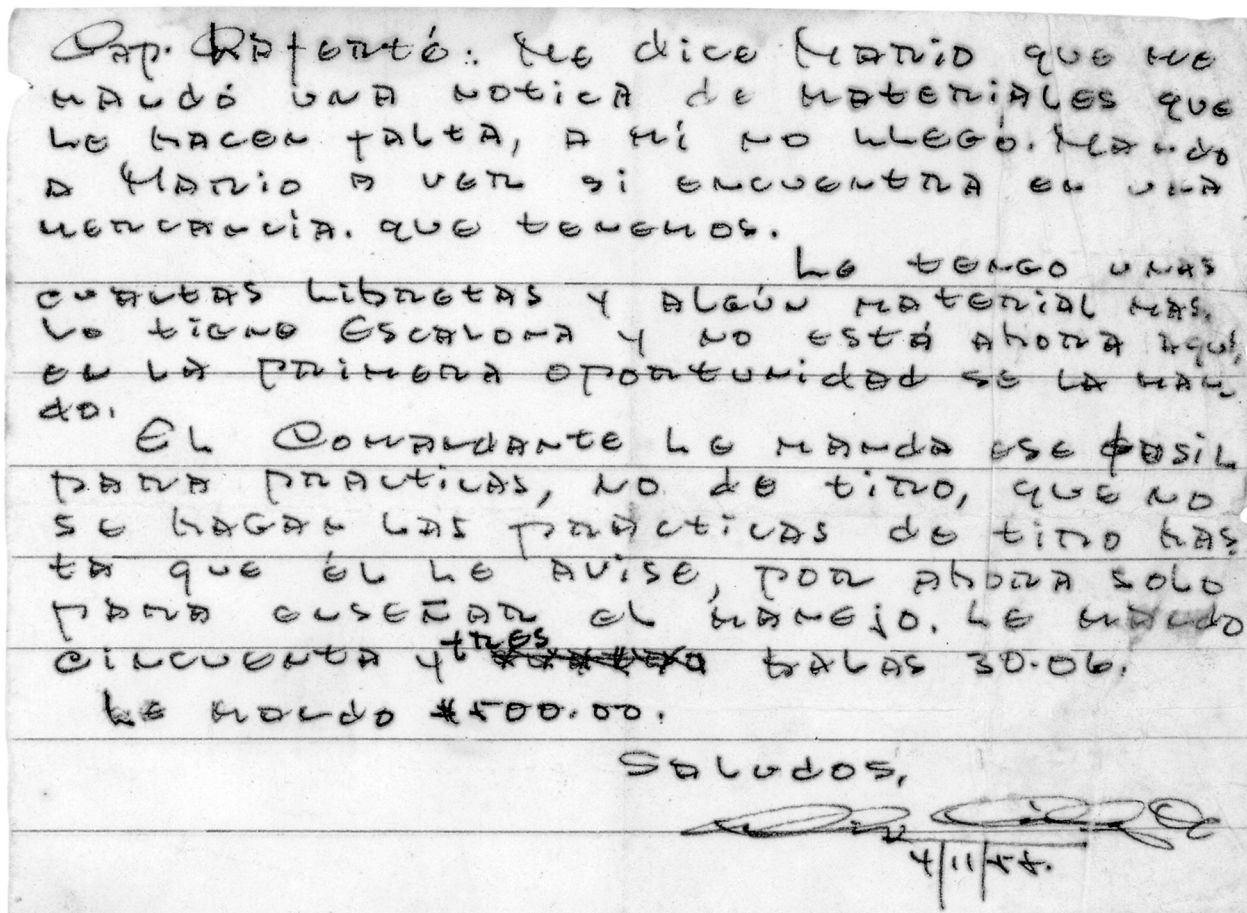 Cap. Laferté: Me dice Mario que me
mandó una notica de materiales que
le hacen falta, a mí no llegó. Mando
a Mario a ver si encuentra en una
mercancía. que tenemos.
Le tengo unas
cuantas libretas y algún material mas.
Lo tiene Escalona y no está ahora aquí,
en la primera oportunidad se la man-
do.
El Comandante le manda ese fusil
para practicas, no de tiro, que no
se hagan las prácticas de tiro has
ta que él le avise, por ahora solo
para enseñar el manejo. Le mando
cincuenta y tres balas 30.06.
Le mando $500.00.
Saludos,
4/11/58.